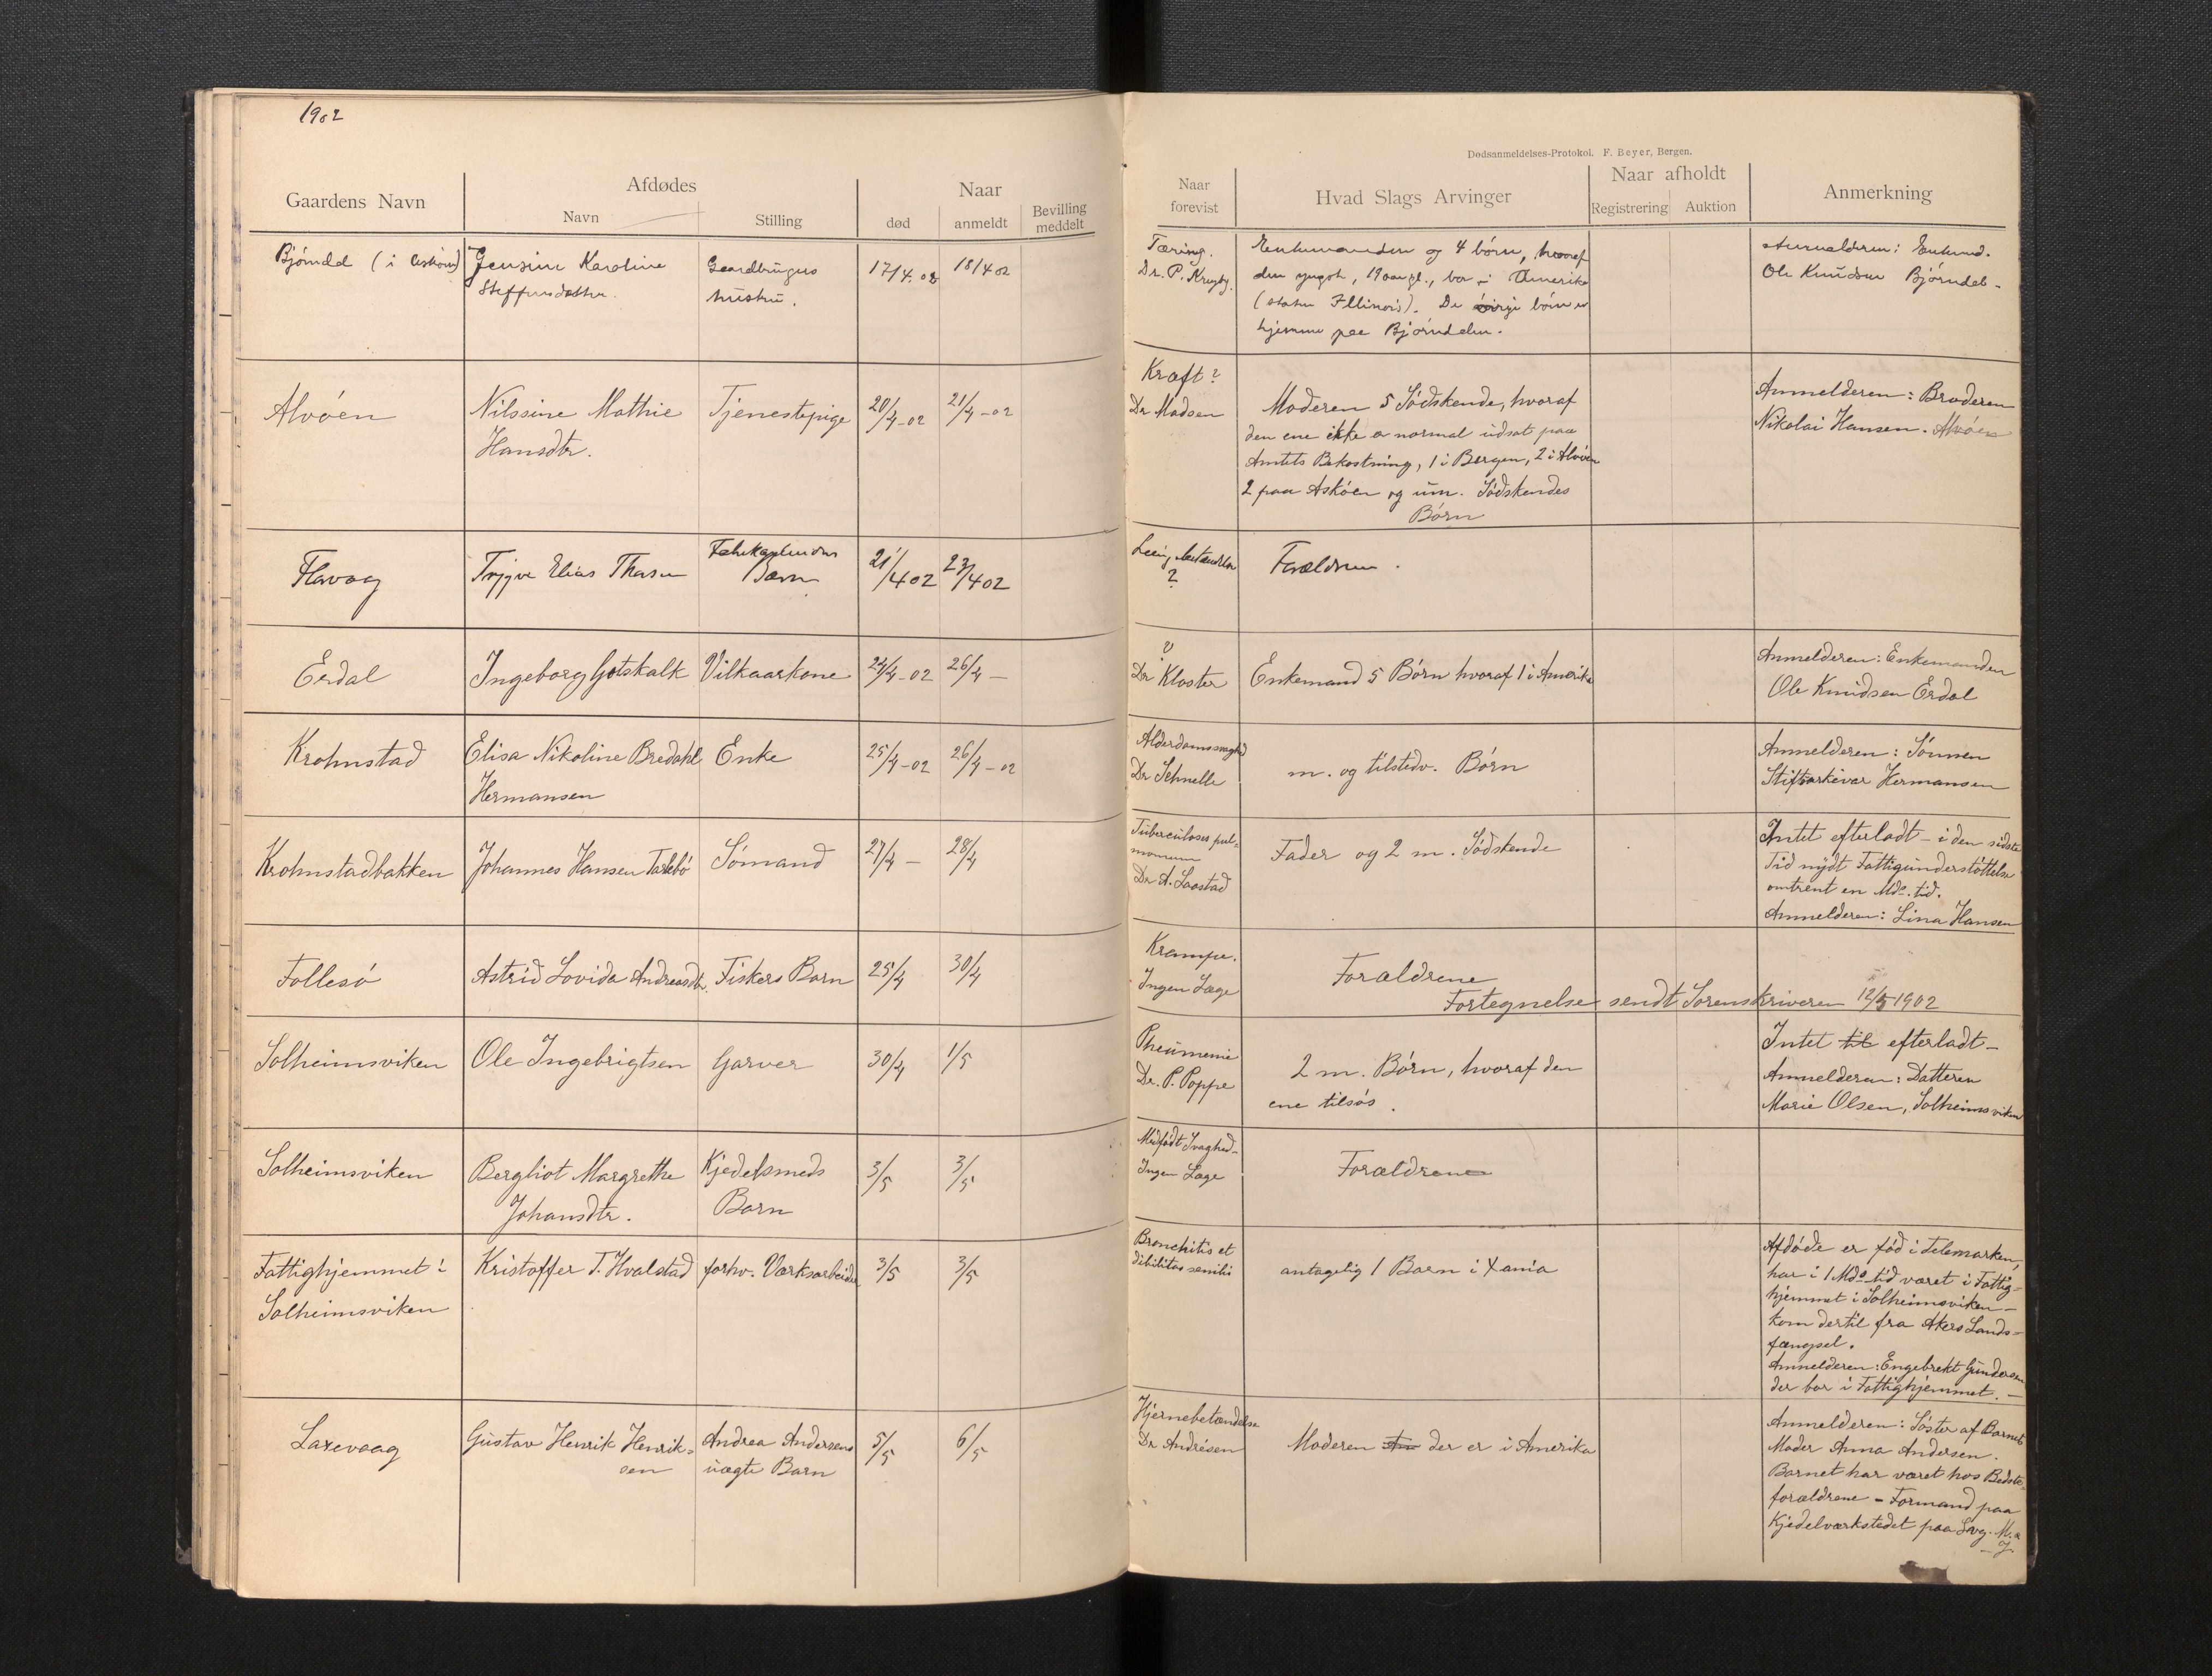 1902
Dødsanmeldelses-Protokol. F. Beyer, Bergen.
Gaardens Navn
Afdødes
Navn
Stilling
Naar
død
anmeldt
Bevilling meddelt
Naar forevist
Hvad Slags Arvinger
Naar afholdt
Registrering
Auktion
Anmerkning
Bjørndal (i Askøen)
Jensine Karoline
Steffensdatter.
Gaardbrugers
hustru.
17/4.02
18/4 02
Tæring.
Dr. P.
Enkemanden og 4 børn, hvoraf
den yngste, 19 aar gl., bor i Amerika
(staten Illinois). De øvrige børn er
hjemme paa Bjørndalen.
Anmelderen: Enkemd.
Ole Knudsen Bjørndal-
Alvøen
Nilssine Mathie
Hansdtr.
Tjenestepige
20/4-02
21/4-02
Kræft?
Dr Madsen
Moderen 5 Sødskende, hvoraf
den ene ikke er normal udsat paa
Amtets Bekostning, 1 i Bergen, 2 i Alvøen
2 paa Askøen og um. Sødskendes
Børn
Anmelderen: Broderen
Nikolai Hansen. Alvøen
Flavaag
Trygve Elias
Barn
21/4 02
23/4 02
?
Forældrene.
Erdal
Ingeborg Gotskalk
Vilkaarkone
24/4-02
26/4 —
?
Dr Kloster
Enkemand 5 Børn hvoraf 1 i Amerika
Anmelderen: Enkemanden
Ole Knudsen Erdal
Krohnstad
Elisa Nikoline Bredahl
Hermansen
Enke
25/4-02
26/4-02
Alderdomssvaghed
Dr Schnelle
m. og tilstedv. Børn
Anmelderen: Sønnen
Stiftsarkivar Hermansen
Krohnstadbakken
Johannes Hansen Tarlebø
Sømand
27/4 —
28/4
Tuberculoses pul-
monum
Dr A. Saastad
Fader og 2 m. Sødskende
Intet efterladt - i den sidste
Tid nydt Fattigunderstøttelse
omtrent en Mds. tid.
Anmelderen: Lina Hansen
Follesø
Astrid Lovida Andreasdtr.
Fiskers Barn
25/4
30/4
Krampe.
Ingen Læge
Forældrene
Fortegnelse sendt Sorenskriveren 12/5 1902
Solheimsviken
Ole Ingebrigtsen
Garver
30/4
1/5
Pneumenie
Dr. P. Poppe
2 m. Børn, hvoraf den
ene tilsøs.
Intet til efterladt-
Anmelderen: Datteren
Marie Olsen, Solheimsviken
Solheimsviken
Bergliot Margrethe
Johansdtr.
Kjedelsmeds
Barn
3/5
3/5
Medfødt Svaghed-
Ingen Læge
Forældrene
Fattighjemmet i
Solheimsviken
Kristoffer T. Hvalstad
forhv. Værksarbeider
3/5
3/5
Bronchitis et
dibilitas senilis
antagelig 1 Barn i Xania
Afdøde er fød i Telemarken,
har i 1 Mds tid været i Fattig-
hjemmet i Solheimsviken-
kom dertil fra Akers Lands-
fængsel.
Anmelderen: Engebrekt Gundersen
der bor i Fattighjemmet. -
Laxevaag
Gustav Henrik Henrik-
sen
Andrea Andersens
uægte Barn
5/5
6/5
Hjernebetændelse
Dr Andresen
Moderen der er i Amerika
Anmelderen: Søster af Barnets
Moder Anna Andersen.
Barnet har været hos Bedste-
forældrene - Formand paa
Kjedelværkstedet paa Lvg. M. &
J.